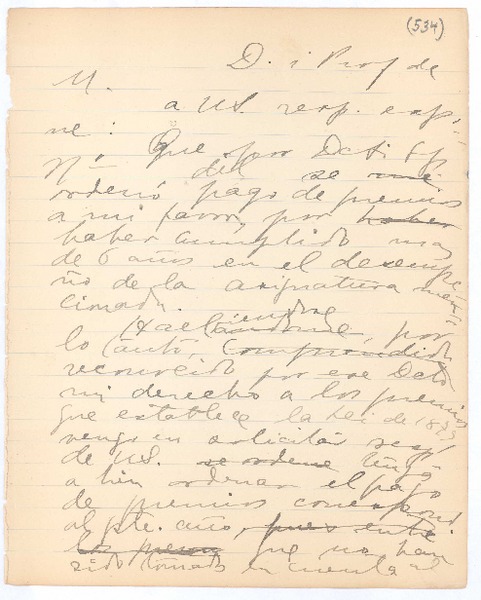 (534)
D. i Prof de
M.
a US. resp. exp
ne:
Que por Dcto Sp
Nº del se
ordenó pago de premios
a mi favor, por haber
haber cumplido mas
de 6 años en el desempe
ño de la asignatura men
cionada.
por
lo tanto, comprendido
reconocido por ese Dcto
mi derecho a los premios
que establece la Lei de 1879
vengo en solicitar resp
de US. se ordene tenga
a bien ordenar el pago
de premios correspond
al pte. año, pues entre
los que no han
sido tomados en cuenta al